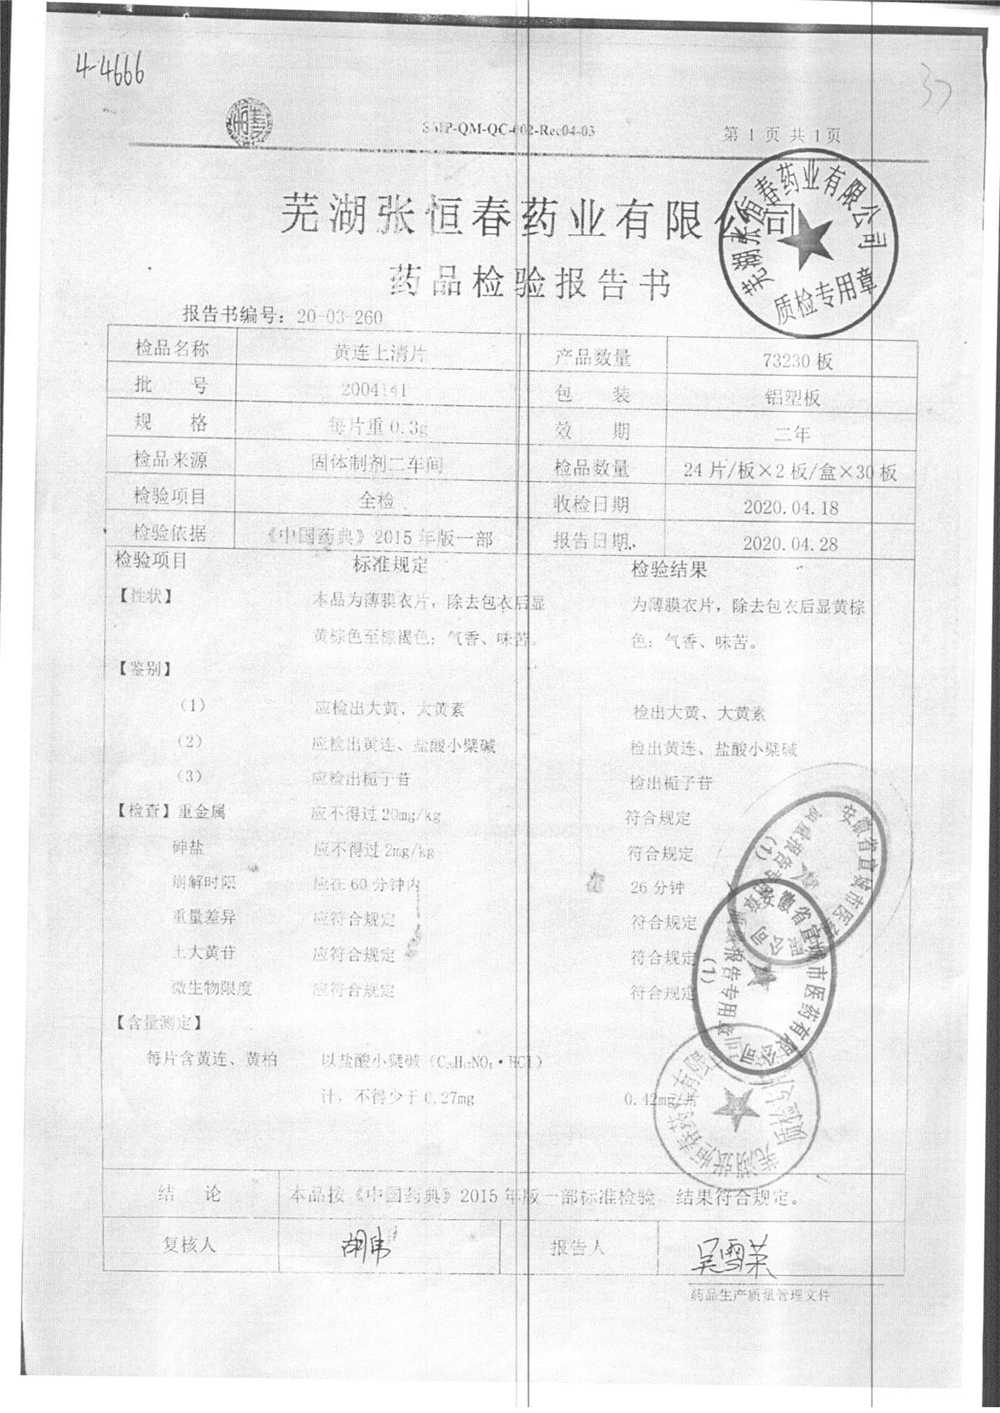 4-4666
37
SMP-QM-QC-002-Rec04-03
第 1 页 共 1 页
芜湖张恒春药业有限公司
药品检验报告书
芜湖张恒春药业有限公司
质检专用章
报告书编号：20-03-260
检品名称 黄连上清片 产品数量 73230 板
批 号 2004141 包 装 铝塑板
规 格 每片重 0.3g 效 期 二年
检品来源 固体制剂二车间 检品数量 24 片/板×2 板/盒×30 板
检验项目 全检 收检日期 2020.04.18
检验依据 《中国药典》2015 年版一部 报告日期 2020.04.28
检验项目 标准规定 检验结果
【性状】 本品为薄膜衣片，除去包衣后显 为薄膜衣片，除去包衣后显黄棕
黄棕色至棕褐色；气香、味苦。 色；气香、味苦。
【鉴别】
（1） 应检出大黄、大黄素 检出大黄、大黄素
（2） 应检出黄连、盐酸小檗碱 检出黄连、盐酸小檗碱
（3） 应检出栀子苷 检出栀子苷
【检查】重金属 应不得过 20mg/kg 符合规定
砷盐 应不得过 2mg/kg 符合规定
崩解时限 应在 60 分钟内 26 分钟
重量差异 应符合规定 符合规定
土大黄苷 应符合规定 符合规定
微生物限度 应符合规定 符合规定
【含量测定】
每片含黄连、黄柏 以盐酸小檗碱（C₂₀H₁₇NO₄·HCl）
计，不得少于 0.27mg 0.42mg/片
安徽省宣城市医药有限公司
质量报告专用章
（1）
芜湖张恒春药业有限公司
结 论 本品按《中国药典》2015 年版一部标准检验 结果符合规定。
复核人 胡伟 报告人 吴雪荣
药品生产质量管理文件